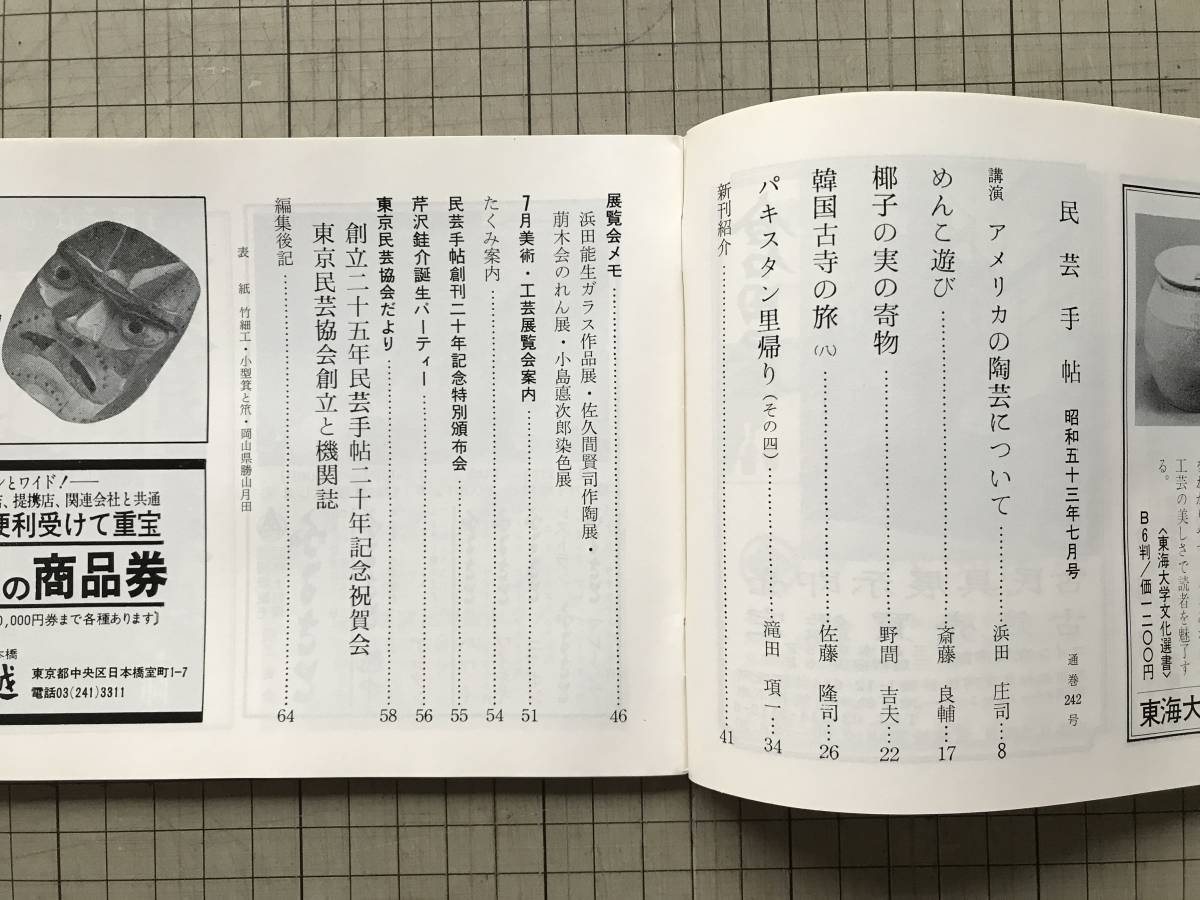 工芸の美しさで読者を魅了す
る。
〈東海大学文化選書〉
B6判/価一二〇〇円
東海大
民芸手帖 昭和五十三年七月号 通巻242号
講演 アメリカの陶芸について……浜田 庄司…8
めんこ遊び……斎藤 良輔…17
椰子の実の寄物……野間 吉夫…22
韓国古寺の旅(八)……佐藤 隆司…26
パキスタン里帰り(その四)……滝田 項一…34
新刊紹介……41
展覧会メモ……46
浜田能生ガラス作品展・佐久間賢司作陶展・
萠木会のれん展・小島悳次郎染色展
7月美術・工芸展覧会案内……51
たくみ案内……54
民芸手帖創刊二十年記念特別頒布会……55
芹沢銈介誕生パーティー……56
東京民芸協会だより……58
創立二十五年民芸手帖二十年記念祝賀会
東京民芸協会創立と機関誌
編集後記……64
表 紙 竹細工・小型箕と笊・岡山県勝山月田
ンとワイド!──
店、提携店、関連会社と共通
便利受けて重宝
の商品券
0,000円券まで各種あります〕
本橋
越
東京都中央区日本橋室町1-7
電話03(241)3311